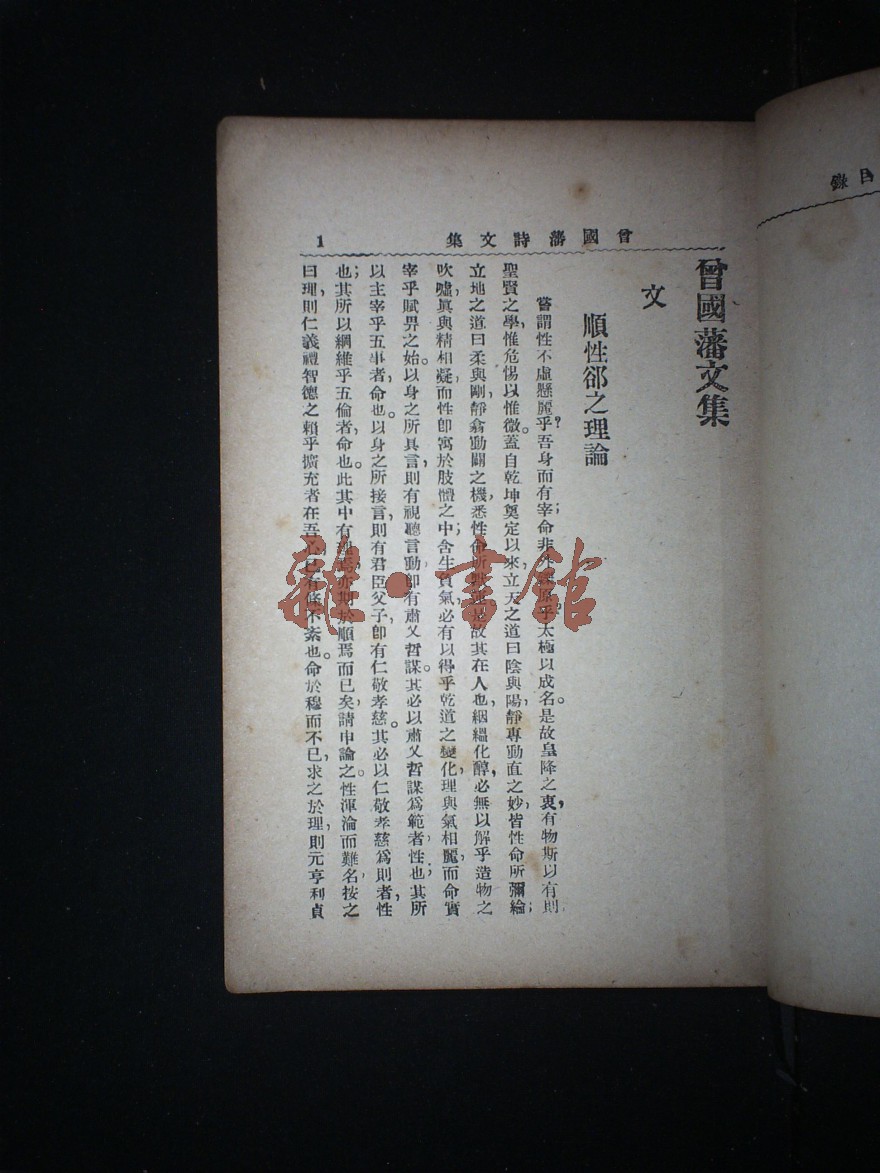 目錄
曾國藩詩文集 1
曾國藩文集
文
順性命之理論
嘗謂性不虛懸,麗乎吾身而有宰;命非原乎太極以成名。是故皇降之衷,有物斯以有則
聖賢之學,惟危惕以惟微。蓋自乾坤奠定以來,立天之道曰陰與陽,靜專動直之妙,皆性命所彌綸;
立地之道曰柔與剛,靜翕動闢之機,悉性命所是故其在人也,絪縕化醇,必無以解乎造物之
吹噓,眞與精相凝,而性卽寓於肢體之中;含生負氣,必有以得乎乾道之變化,理與氣相麗,而命實
宰乎賦畀之始。以身之所具言,則有視聽言動,卽有肅乂哲謀。其必以肅乂哲謀爲範者,性也;其所
以主宰乎五事者,命也。以身之所接言,則有君臣父子,卽有仁敬孝慈。其必以仁敬孝慈爲則者,性
也;其所以綱維乎五倫者,命也。此其中有焉,亦期於順焉而已矣,請申論之。性渾淪而難名,按之
曰理,則仁義禮智德之賴乎擴充者,在吾心已有條不紊也。命於穆而不已,求之於理,則元亨利貞
雜·書館